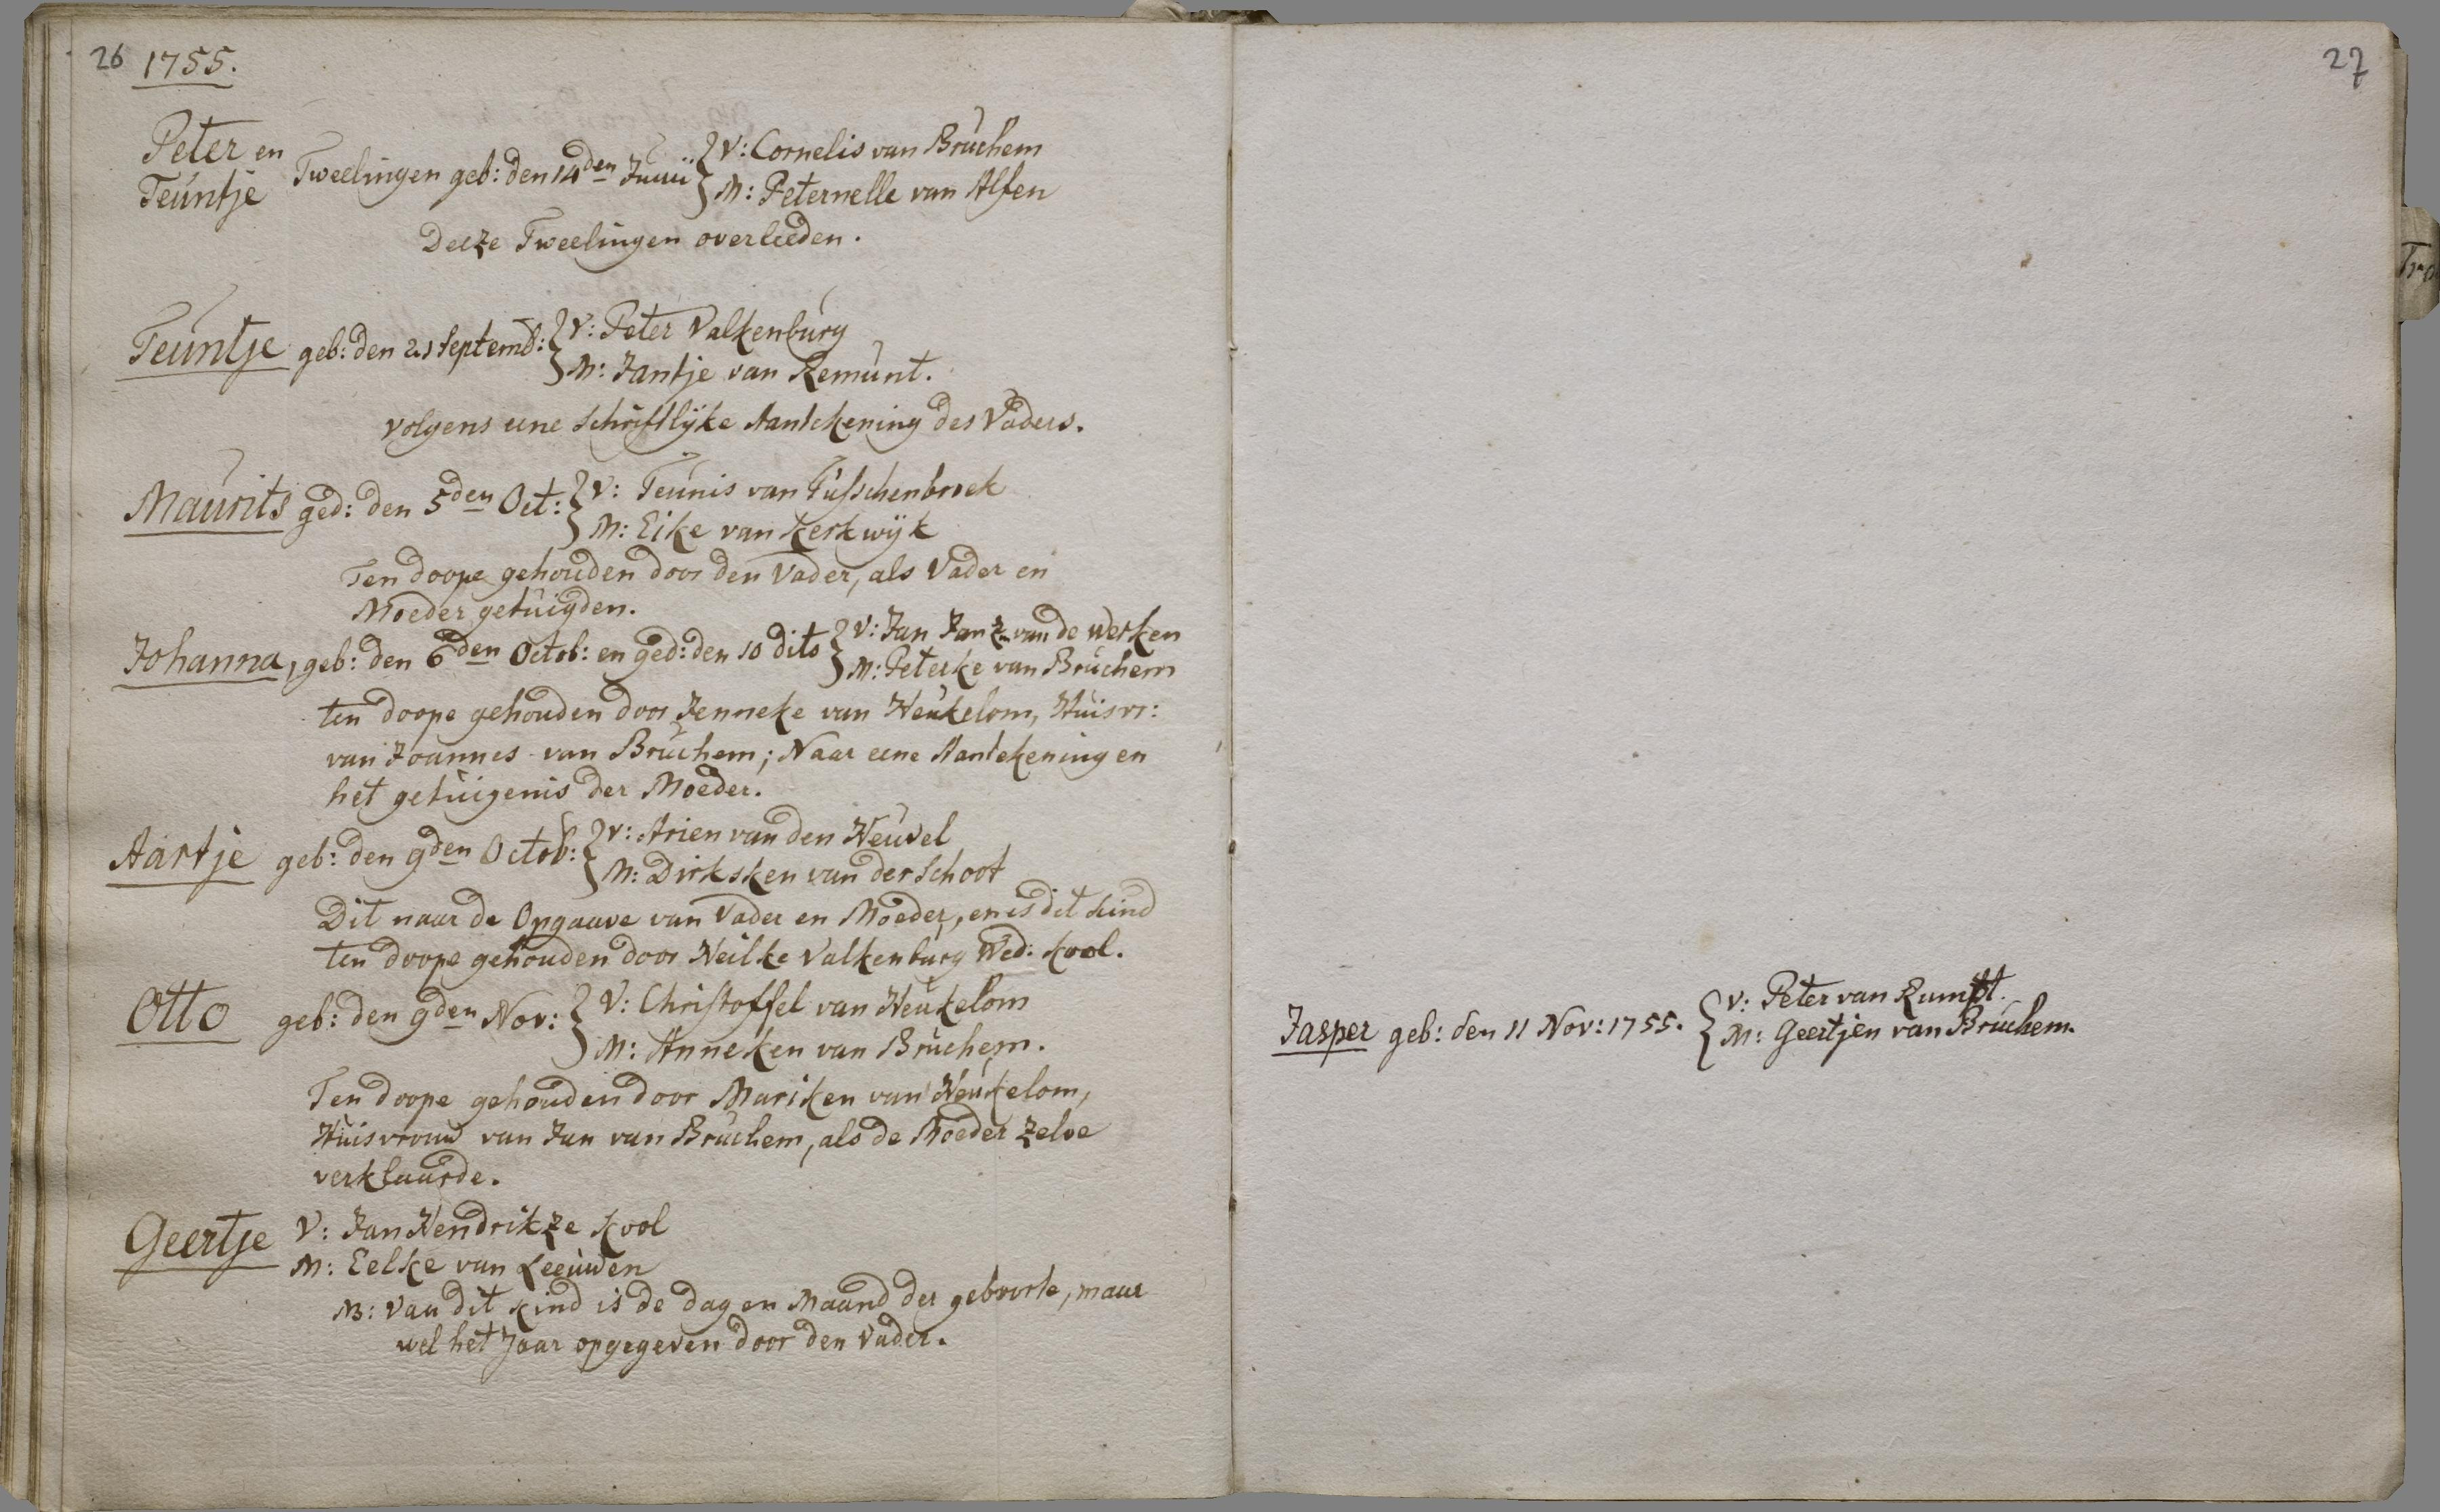 26 1755.
Peter en
Teuntje
Tweelingen geb: den 14den Junii
V: Cornelis van Bruchem
M: Peternelle van Alfen
Deeze Tweelingen overleeden.
Teuntje geb: den 21 Septemb:
V: Peter Valkenburg
M: Jantje van Remunt.
volgens eene Schriftlyke Aantekening des Vaders.
Maurits ged: den 5den Oct:
V: Teunis van Tusschenbroek
M: Eike van Kerkwijk
Ten doope gehouden door den Vader, als Vader en
Moeder getuigden.
Johanna, geb: den 6den Octob: en ged: den 10 dito
V: Jan Janz. van de Werken
M: Peterke van Bruchem
ten doope gehouden door Jenneke van Heukelom, Huisvr:
van Joannes van Bruchem; Naar eene Aantekening en
het getuigenis der Moeder.
Aartje geb: den 9den Octob:
V: Arien van den Heuvel
M: Dirksken van der Schoot
Dit naar de Opgaave van Vader en Moeder, en is dit kind
ten doope gehouden door Neilke Valkenburg Wed: Kool.
Otto geb: den 9den Nov:
V: Christoffel van Heukelom
M: Anneken van Bruchem.
Ten doope gehouden door Mariken van Heukelom,
Huisvrouw van Jan van Bruchem, als de Moeder zelve
verklaarde.
Geertje V: Jan Hendrikze Kool
M: Eelke van Leeuwen
NB: Van dit kind is de dag en Maand der geboorte, maar
wel het Jaar opgegeven door den Vader.
27
Jasper geb: den 11 Nov: 1755.
V: Peter van Rumpt.
M: Geertjen van Bruchem.